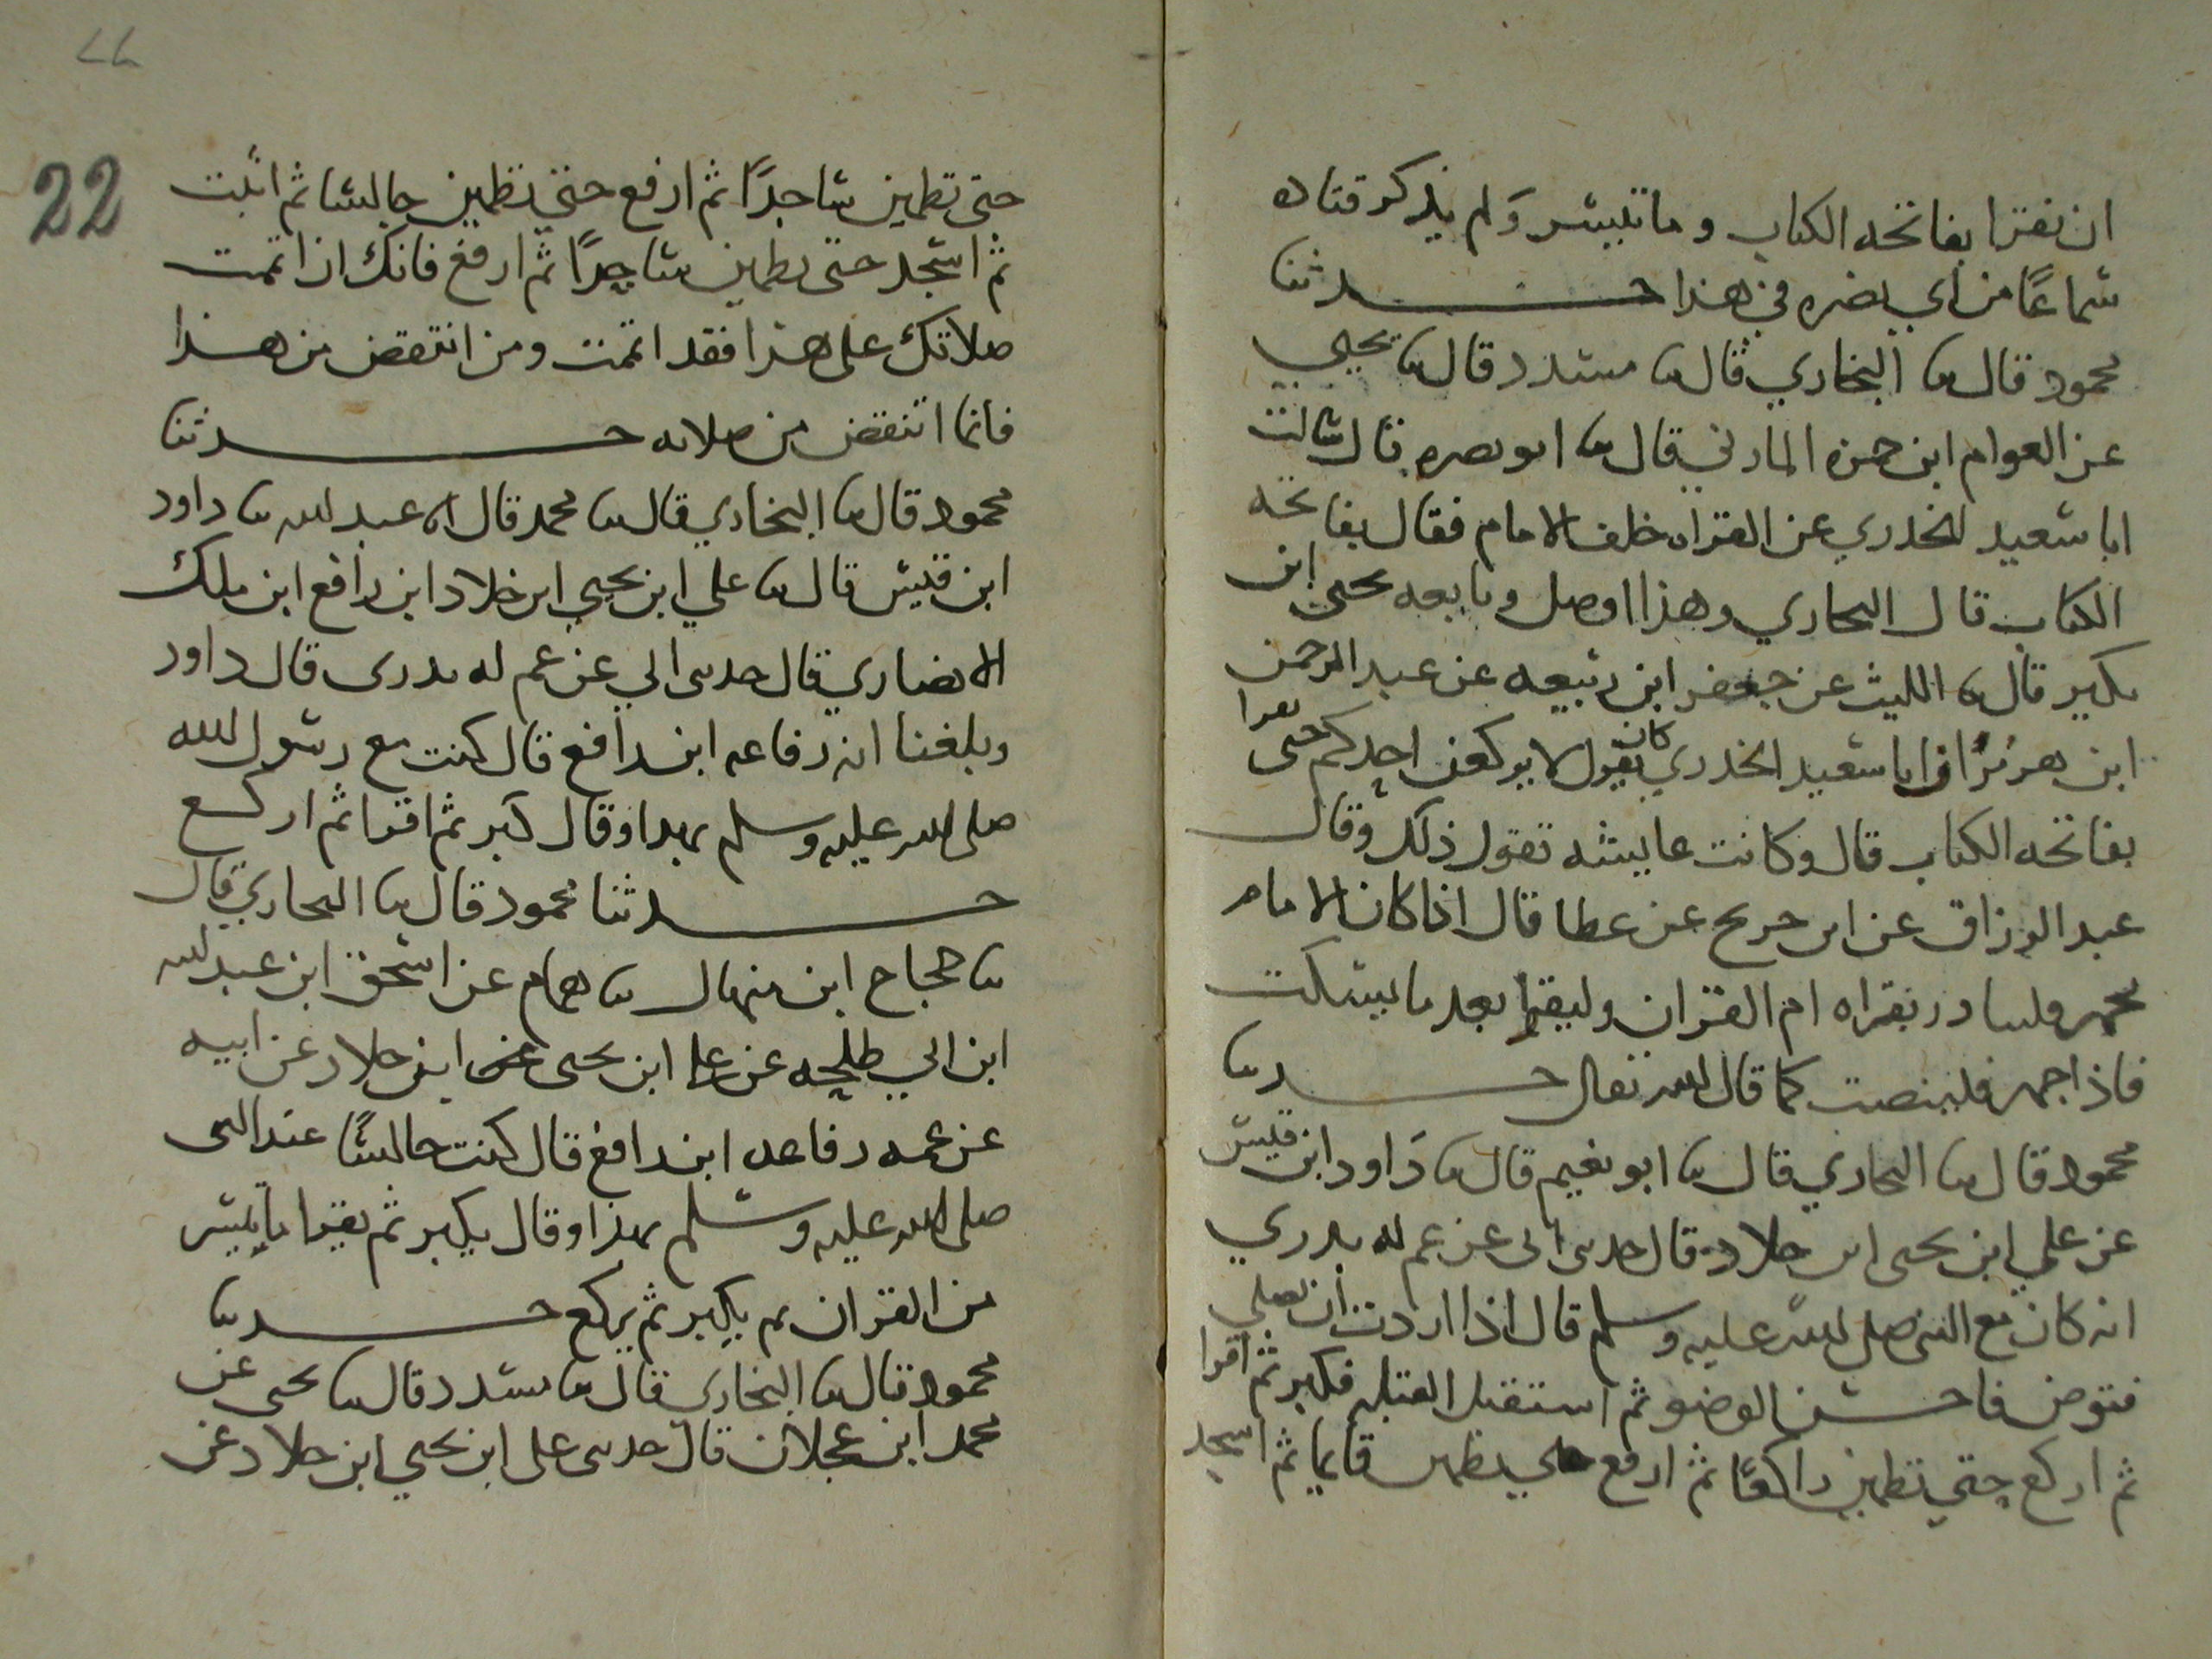 ان نقرا بفاتحه الكتاب وما تيسر ولم يذكر قتاده
سماعًا من ابي نضره في هذا حدثنا
محمود قال ثنا البخاري قال ثنا مسدد قال ثنا يحيي
عن العوام ابن حمزه المازني قال ثنا ابو نضره قال سالت
ابا سعيد الخدري عن القراه خلف الامام فقال بفاتحه
الكتاب قال البخاري وهذا اوصل وتابعه يحيى ابن
بكير قال ثنا الليث عن جعفر ابن ربيعه عن عبد الرحمن
ابن هرمز ان ابا سعيد الخدري كان يقول لا يركعن احدكم حتى يقرا
بفاتحه الكتاب قال وكانت عايشه تقول ذلك وقال
عبد الرزاق عن ابن جريج عن عطا قال اذا كان الامام
يجهر فليبادر بقراه ام القران وليقرا بعد ما يسكت
فاذا جهر فلينصت كما قال الله تعالى حدثنا
محمود قال ثنا البخاري قال ثنا ابو نعيم قال ثنا داود ابن قيس
عن علي ابن يحيى ابن خلاد قال حدثنى ابى عن عم له بدري
انه كان مع النبي صلى الله عليه وسلم قال اذا اردت ان تصلي
فتوض فاحسن الوضو ثم استقبل القبله فكبر ثم اقرا
ثم اركع حتي تطمين راكعًا ثم ارفع حتي تطمين قايما ثم اسجد
22
حتى تطمين ساجدًا ثم ارفع حتي تطمين جالسا ثم اثبت
ثم اسجد حتى تطمين ساجدًا ثم ارفع فانك ان اتممت
صلاتك على هذا فقد اتممت ومن انتقص من هذا
فانما انتقص من صلاته حدثنا
محمود قال ثنا البخاري قال ثنا محمد قال انا عبد الله ثنا داود
ابن قيس قال ثنا علي ابن يحيي ابن خلاد ابن رافع ابن ملك
الانصاري قال حدثنى ابي عن عم له بدرى قال داود
وبلغنا انه رفاعه ابن رافع قال كنت مع رسول الله
صلى الله عليه وسلم بهذا وقال كبر ثم اقرا ثم اركع
حدثنا محمود قال ثنا البخاري قال
ثنا حجاج ابن منهال ثنا همام عن اسحق ابن عبد الله
ابن ابي طلحه عن على ابن يحيى ابن خلاد عن ابيه
عن عمه رفاعه ابن رافع قال كنت جالسًا عند النبى
صلى الله عليه وسلم بهذا وقال يكبر ثم يقرا ما تيسر
من القران ثم يكبر ثم يركع حدثنا
محمود قال ثنا البخاري قال ثنا مسدد قال ثنا يحيى عن
محمد ابن عجلان قال حدثنى على ابن يحيي ابن خلاد عن